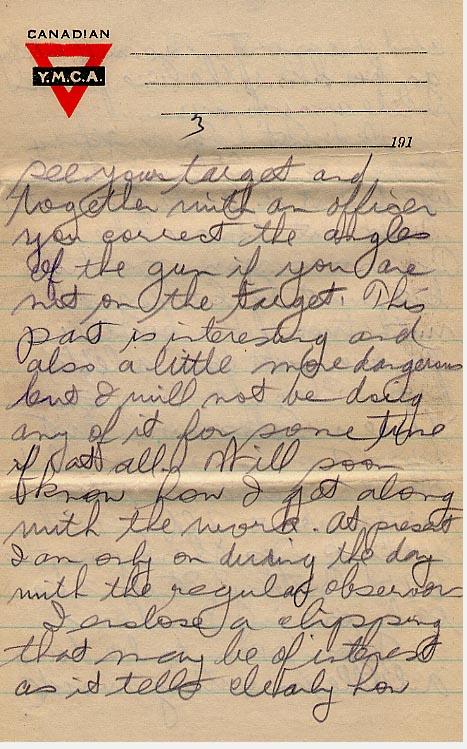 CANADIAN
Y.M.C.A.
3
191
see your target and
together with an officer
you correct the angles
of the gun if you are
not on the target. This
part is interesting and
also a little more dangerous
but I will not be doing
any of it for some time
if at all. Will soon
know how I get along
with the work. At present
I am only on during the day
with the regular observors
I enclose a clipping
that may be of interest
as it tells clearly how